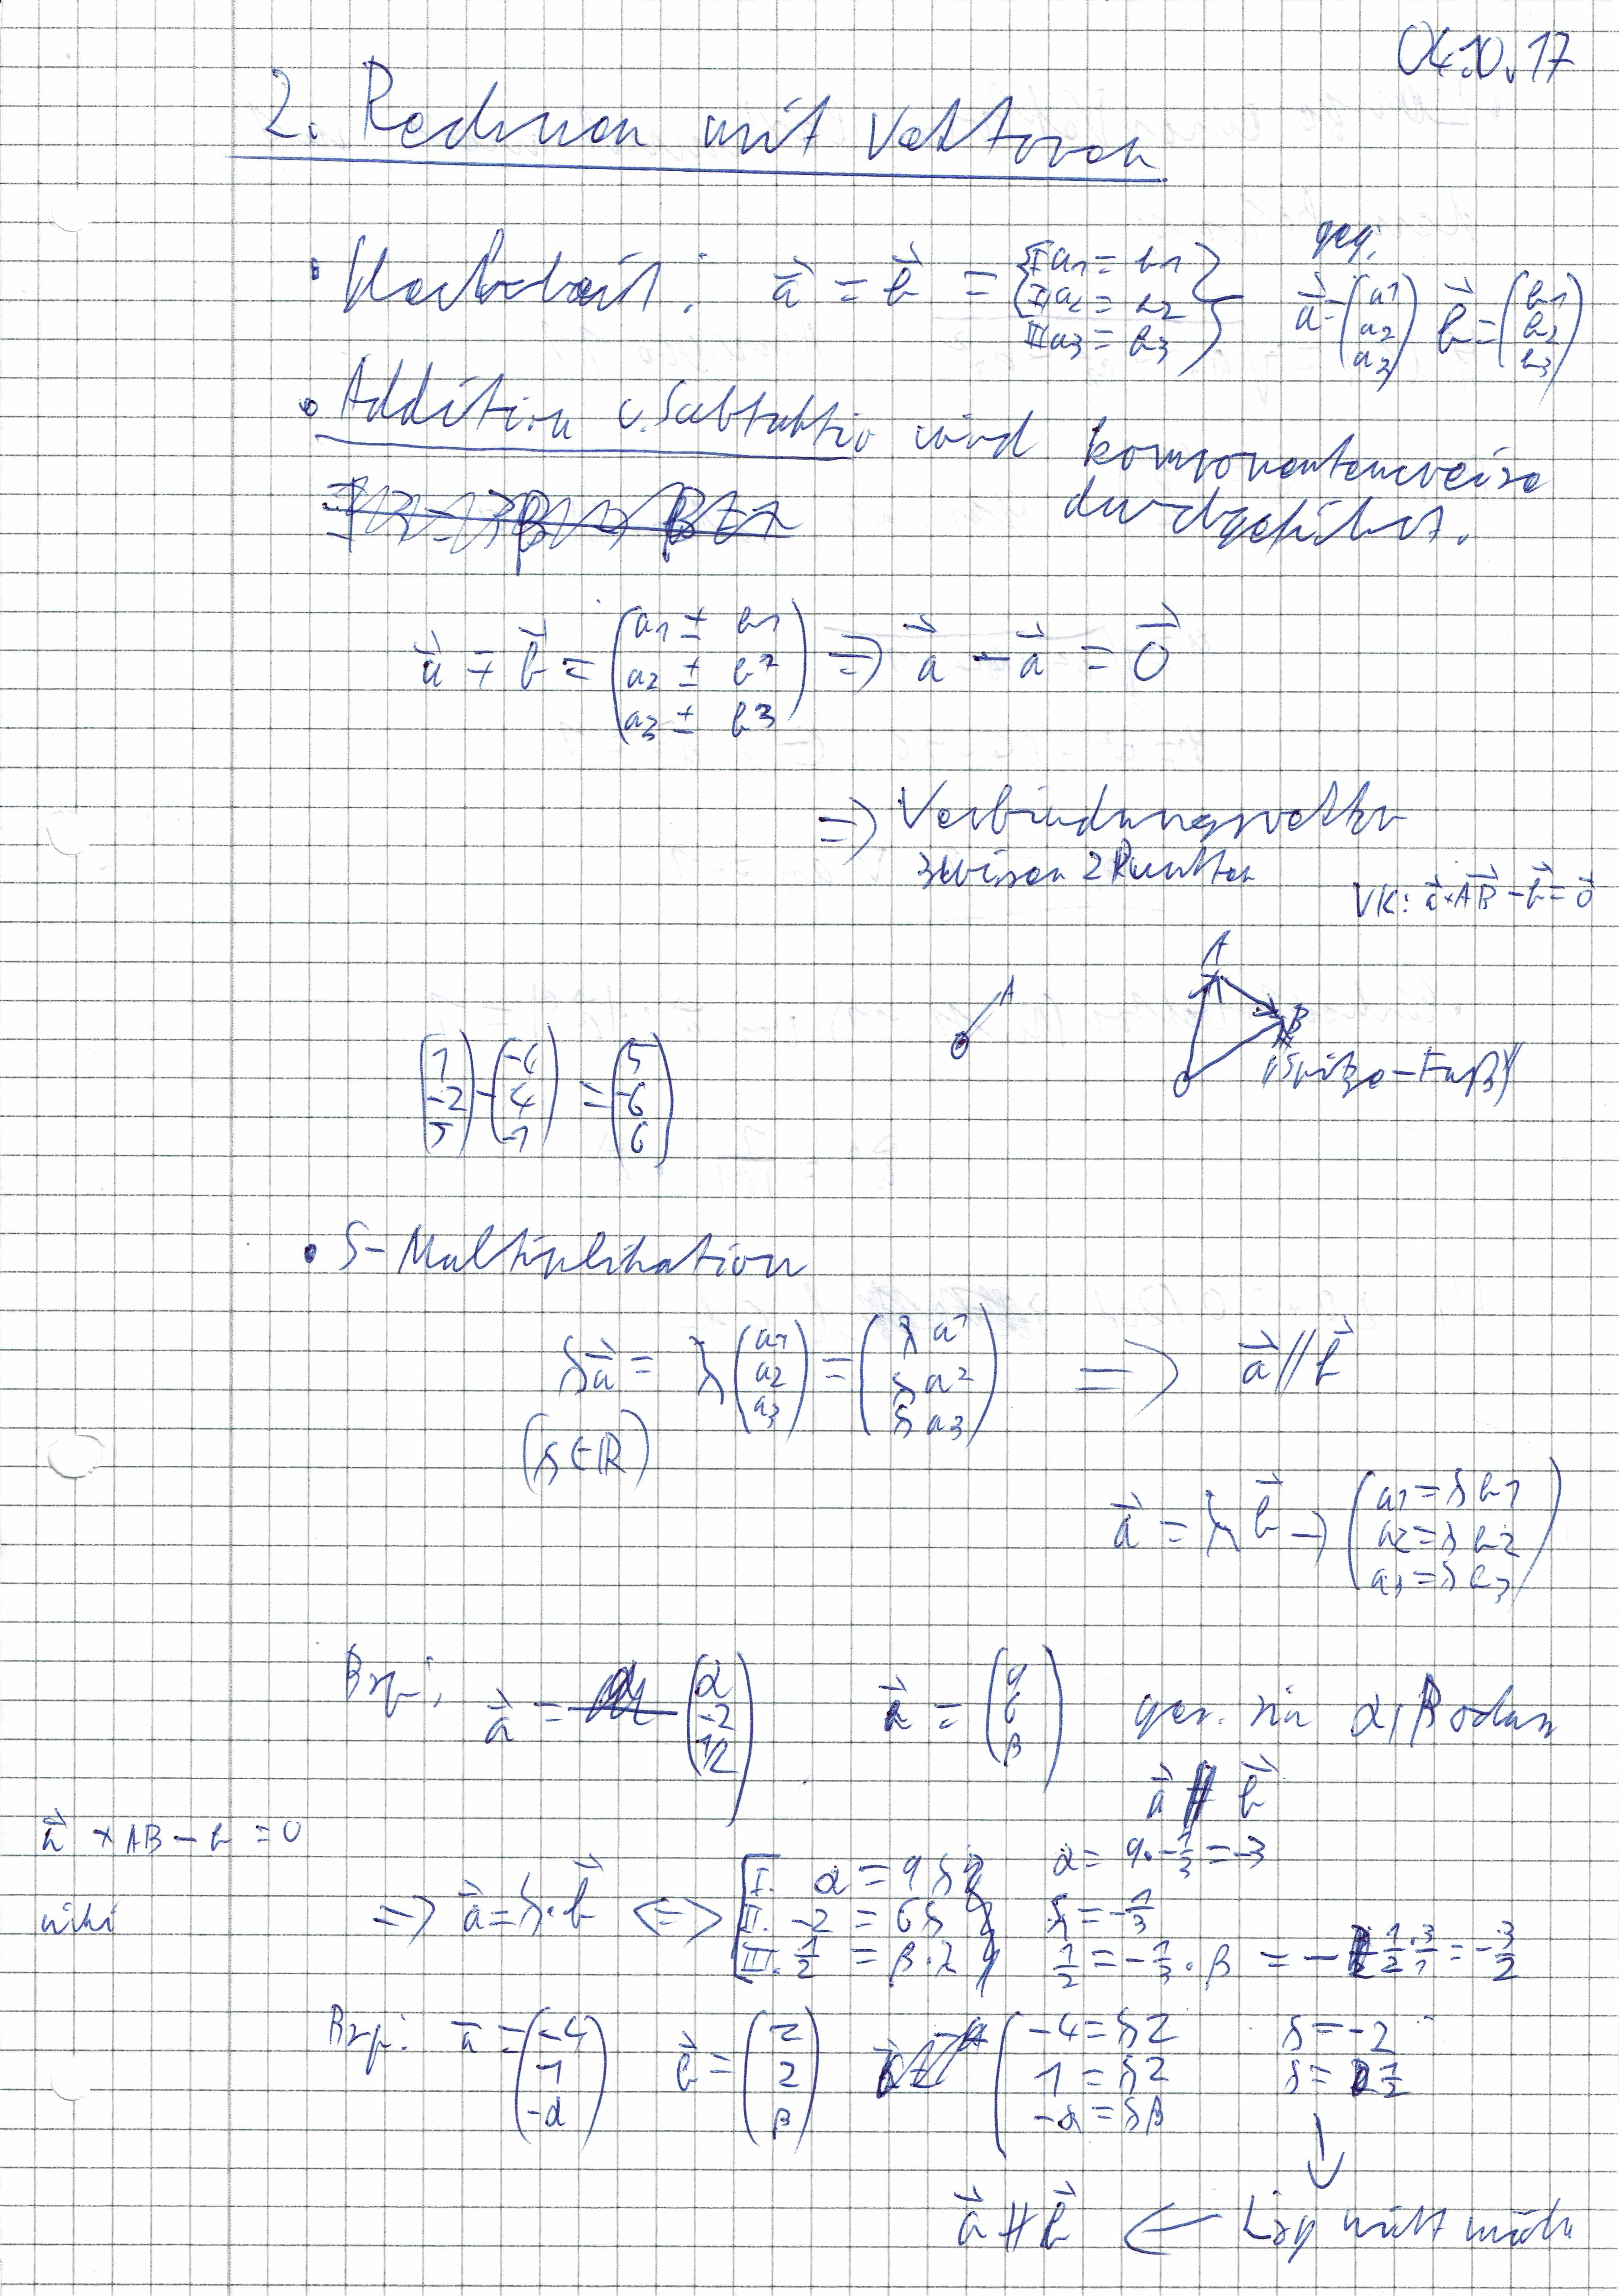 04.10.17
2. Rechnen mit Vektoren
a⃗ = b⃗ = { I a1 = b1
II a2 = b2
III a3 = b3 }
geg:
a⃗ = (a1 a2 a3) b⃗ = (b1 b2 b3)
• Addition u. Subtraktio wird komponentenweise
durchgeführt.
a⃗ ∓ b⃗ = (a1 ± b1
a2 ± b2
a3 ± b3) ⇒ a⃗ - a⃗ = 0⃗
⇒ Verbindungsvektor
zwischen 2 Punkten
VK: a⃗ + AB⃗ - b⃗ = 0⃗
A
A
B
(Spitze - Fuß)
(1 -2 5) - (-4 4 -1) = (5 -6 6)
• S-Multiplikation
λa⃗ = λ (a1 a2 a3) = (λ a1
λ a2
λ a3) ⇒ a⃗ // b⃗
(λ ∈ ℝ)
a⃗ = λ b⃗ → (a1 = λ b1
a2 = λ b2
a3 = λ b3)
Bsp: a⃗ = (α -2 1/2) = (9 6 β) ges. sin α, β sodass
a⃗ // b⃗
a⃗ + AB - b = 0
α = 9 · -1/3 = -3
⇒ a⃗ = λ · b⃗ ⇔ [ I. α = 9 λ
II. -2 = 6λ λ = -1/3
III. 1/2 = β · λ 1/2 = -1/3 · β = - 1/2 · 3/1 = -3/2
Bsp: a⃗ = (-4 1 -α) b⃗ = (2 2 β) (-4 = λ2 λ = -2
1 = λ2 λ = 1/2
-α = λβ
a⃗ ∦ b⃗ ← Lsg nicht mögl